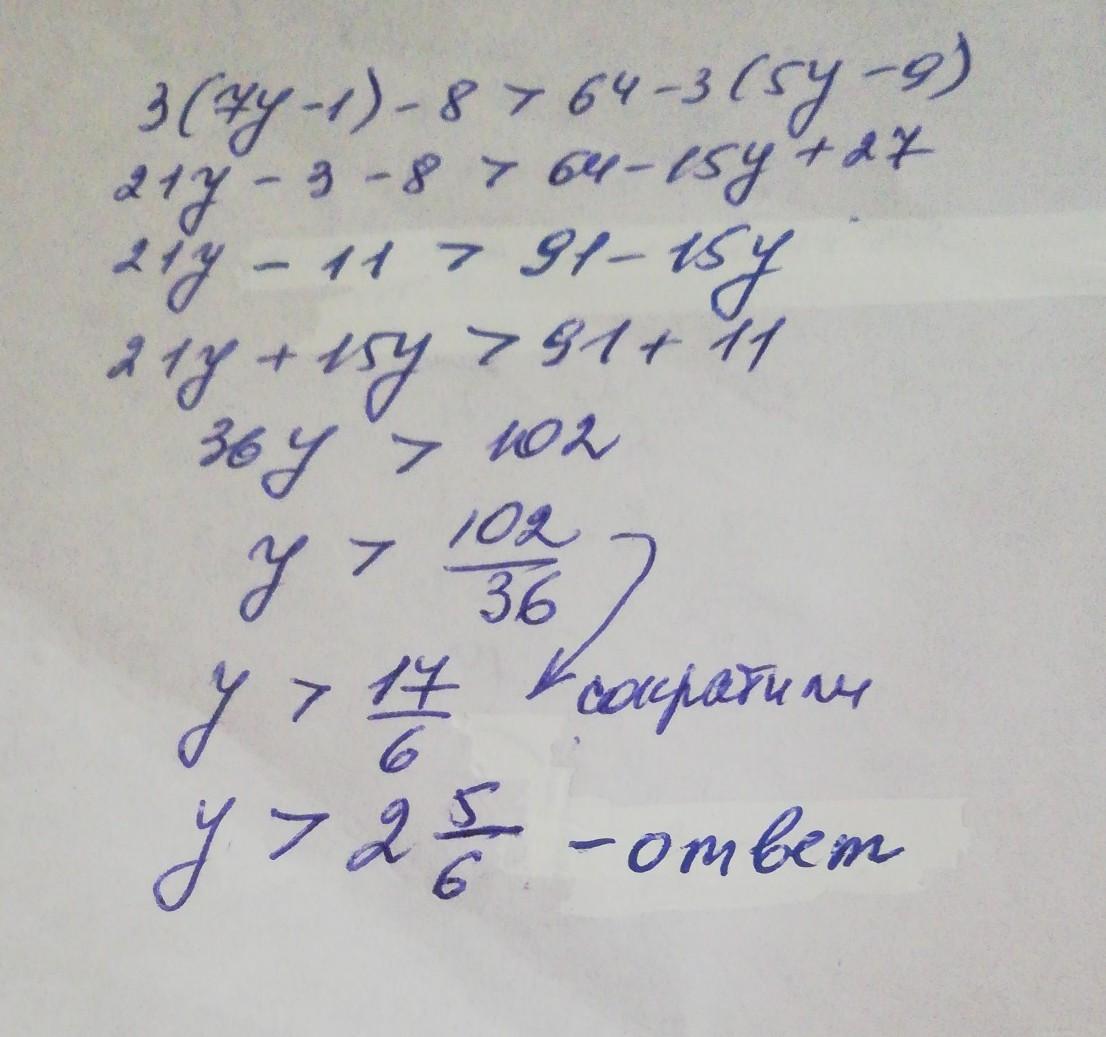 3(7y-1)-8 > 64-3(5y-9)
21y - 3 - 8 > 64-15y+27
21y - 11 > 91-15y
21y + 15y > 91 + 11
36y > 102
y > 102/36
y > 17/6 сократили
y > 2 5/6 - ответ